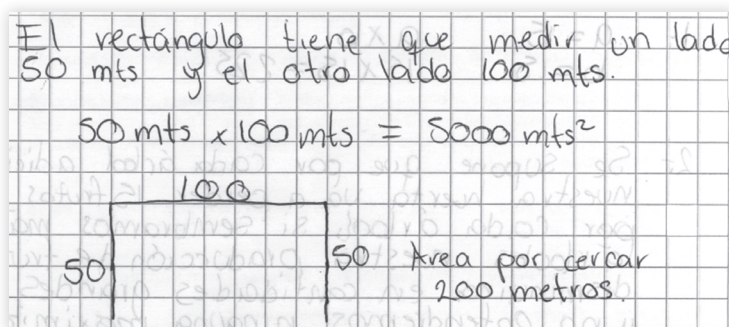 El rectángulo tiene que medir un lado
50 mts y el otro lado 100 mts.
50 mts x 100 mts = 5000 mts²
100
50
50 Area por cercar
200 metros.